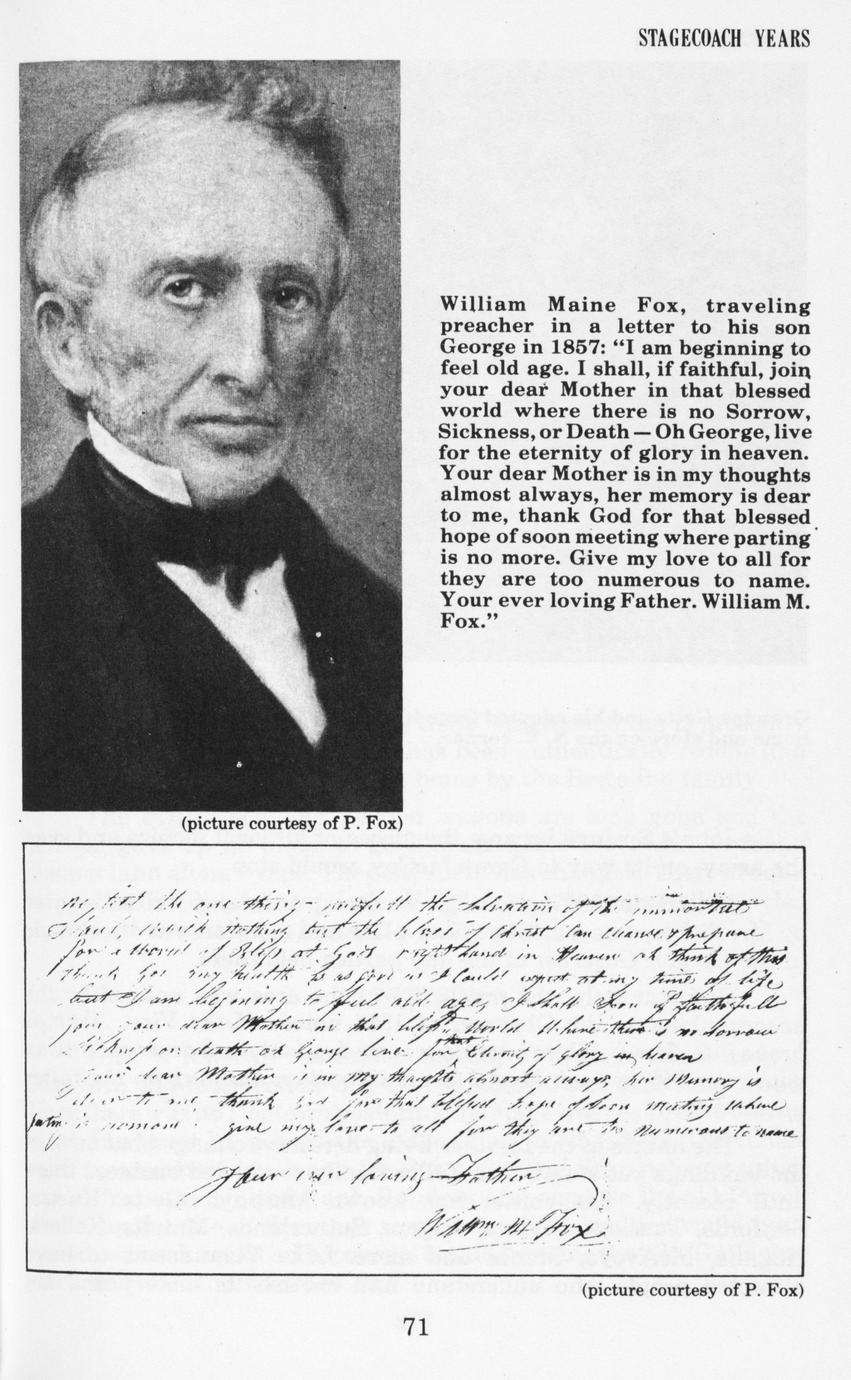 STAGECOACH YEARS
William Maine Fox, traveling
preacher in a letter to his son
George in 1857: “I am beginning to
feel old age. I shall, if faithful, join
your dear Mother in that blessed
world where there is no Sorrow,
Sickness, or Death — Oh George, live
for the eternity of glory in heaven.
Your dear Mother is in my thoughts
almost always, her memory is dear
to me, thank God for that blessed
hope of soon meeting where parting
is no more. Give my love to all for
they are too numerous to name.
Your ever loving Father. William M.
Fox.”
(picture courtesy of P. Fox)
but the one thing the Salvation of the immortal
Soul, nothing but the blood of Christ can cleanse & prepare
for a world of Bliss at Gods right hand in Heaven oh think of this
thank God my health is as good as I could expect at my time of life
but I am begining to feel old age, I shall soon if faithfull
join your dear Mother in that blest world where there is no sorrow
Sickness or death oh George live for that Eternity of glory in heaven
your dear Mother is in my thoughts almost always, her Memory is
dear to me thank God for that blessed hope of soon meeting where
parting is nomore give my love to all for they are to numerous to name
Your ever loving Father
Willm M Fox
(picture courtesy of P. Fox)
71